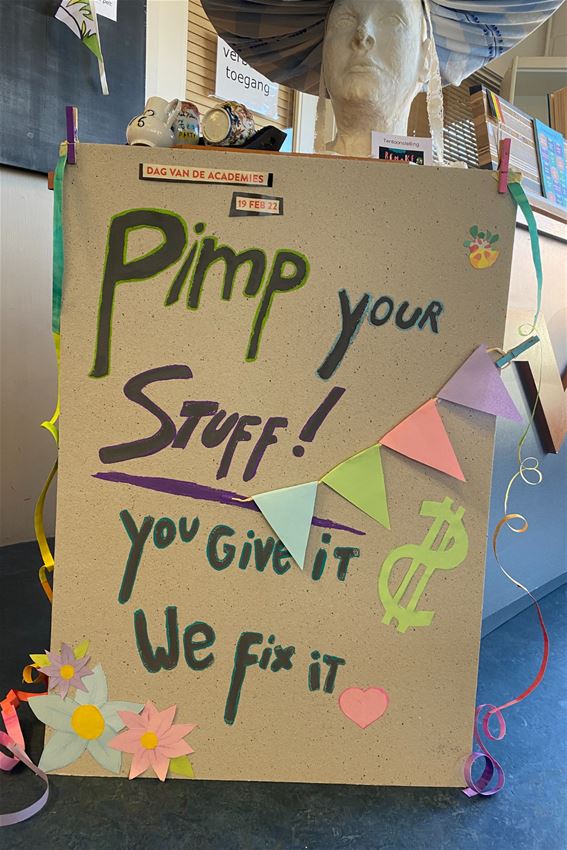 toegang
Tentoonstelling
DAG VAN DE ACADEMIES
19 FEB 22
Pimp your
Stuff!
you Give it
We fix iT